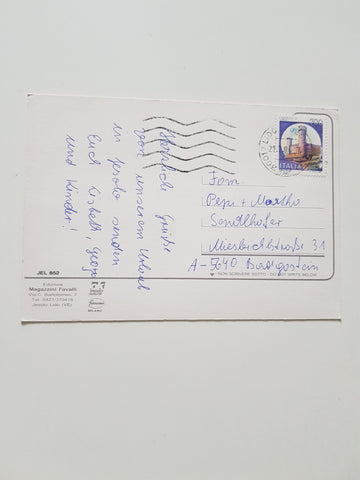 Herzliche Grüße
von unserem Urlaub
in Jesolo senden
Euch Lisbeth, Georg
und Kinder!
ITALIA
Fam.
Pepi + Martha
Sendlhofer
31
A-5640 Badgastein
NON SCRIVERE SOTTO - DO NOT WRITE BELOW
JEL 852
Edizione
Magazzini Favalli
Via C. Bartolomeo, 7
Tel. 0421-370418
Jesolo Lido (VE)
MILANO